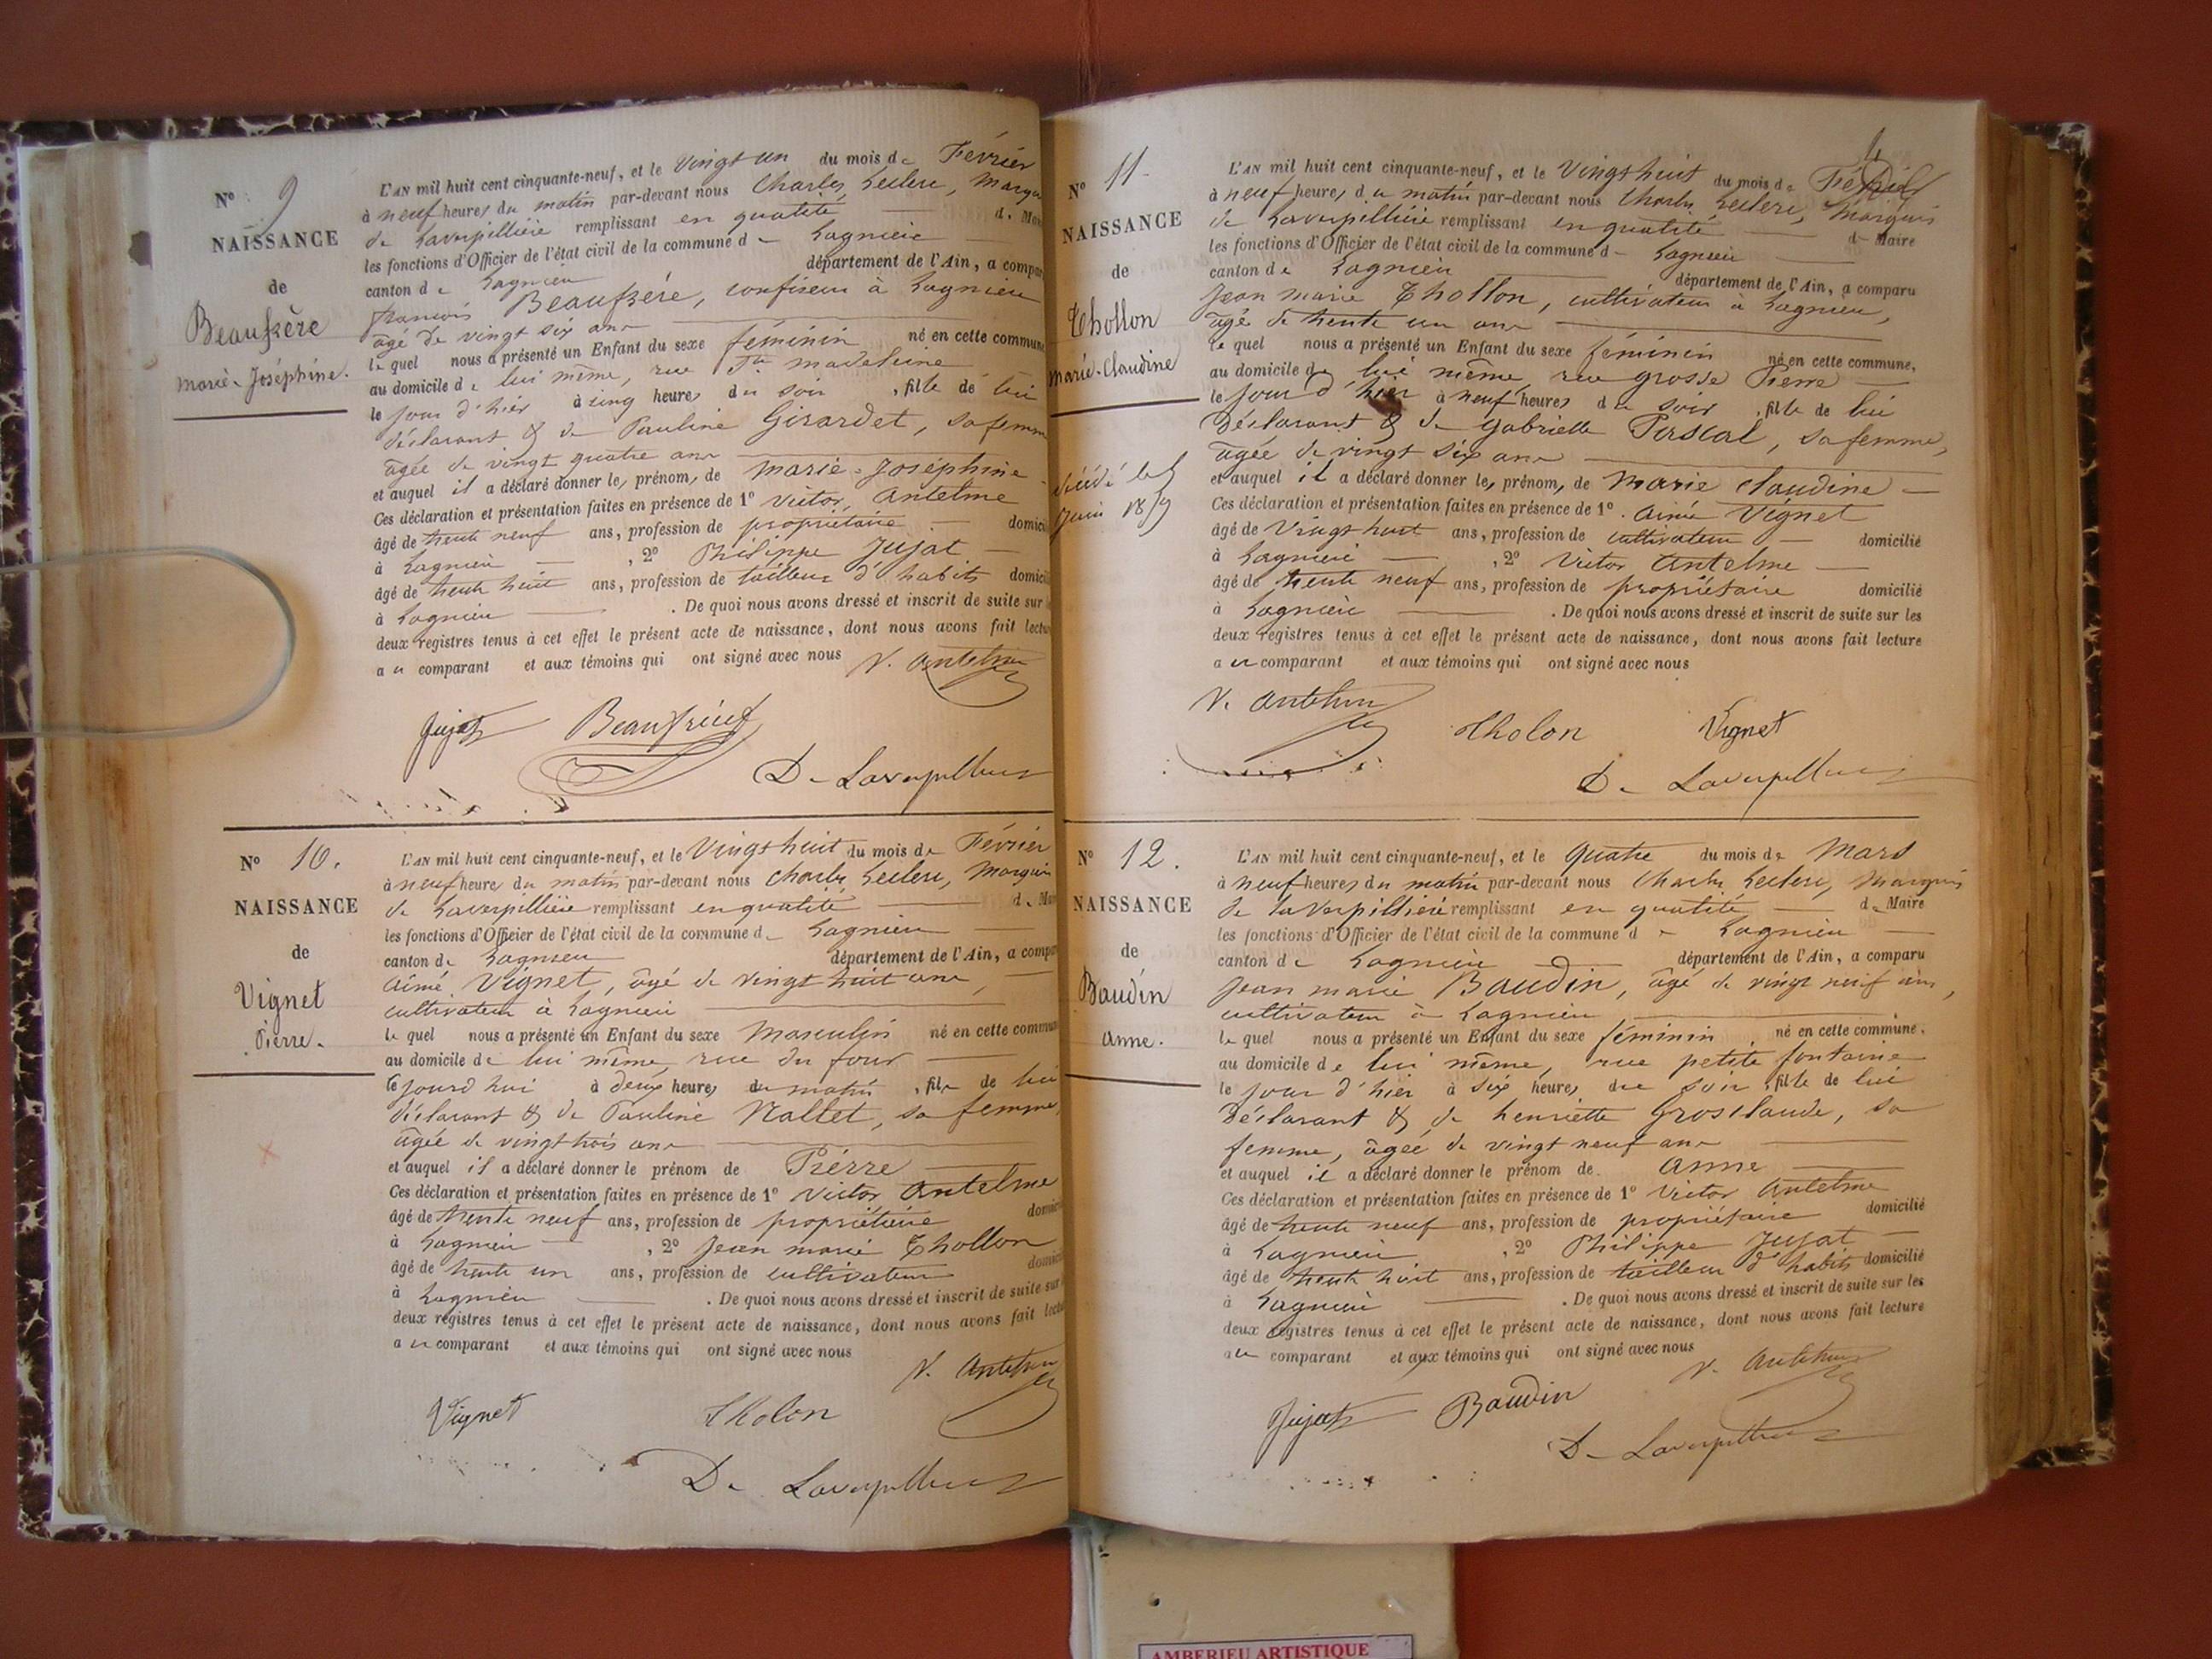 N° 9
NAISSANCE
de
Beaufrère
Marie-Joséphine.
L'AN mil huit cent cinquante-neuf, et le Vingt un du mois de Février
à neuf heures du matin par-devant nous Charles Leclerc, Marqu
de Laverpillière remplissant en qualité de Mai
les fonctions d'Officier de l'état civil de la commune de Lagnieu
canton de Lagnieu département de l'Ain, a compar
françois Beaufrère, confiseur à Lagnieu
âgé de vingt six ans
le quel nous a présenté un Enfant du sexe féminin né en cette commune
au domicile de lui même, rue Ste madeleine
le jour d'hier à cinq heures du soir, fille de lui
déclarant & de Pauline Girardet, sa femme
âgée de vingt quatre ans
et auquel il a déclaré donner les prénoms de Marie-Joséphine
Ces déclaration et présentation faites en présence de 1° Victor Antelme
âgé de trente neuf ans, profession de propriétaire domici
à Lagnieu, 2° Philippe Jujat
âgé de trente huit ans, profession de tailleur d'habits domici
à Lagnieu. De quoi nous avons dressé et inscrit de suite sur
deux registres tenus à cet effet le présent acte de naissance, dont nous avons fait lectur
au comparant et aux témoins qui ont signé avec nous V. Antelme
Jujat Beaufrère
De Laverpilliere
N° 10.
NAISSANCE
de
Vignet
Pierre.
L'AN mil huit cent cinquante-neuf, et le Vingt huit du mois de Février
à neuf heures du matin par-devant nous Charles Leclerc, Marquis
de Laverpillière remplissant en qualité de Mai
les fonctions d'Officier de l'état civil de la commune de Lagnieu
canton de Lagnieu département de l'Ain, a compa
Aimé Vignet, âgé de vingt huit ans,
cultivateur à Lagnieu
le quel nous a présenté un Enfant du sexe Masculin né en cette commun
au domicile de lui même, rue du four
le jourd'hui à deux heures du matin, fils de lui
déclarant & de Pauline Nallet, sa femme,
âgée de vingt trois ans
et auquel il a déclaré donner le prénom de Pierre
Ces déclaration et présentation faites en présence de 1° Victor Antelme
âgé de trente neuf ans, profession de propriétaire domici
à Lagnieu, 2° Jean marie Thollon
âgé de trente un ans, profession de cultivateur domici
à Lagnieu. De quoi nous avons dressé et inscrit de suite sur
deux registres tenus à cet effet le présent acte de naissance, dont nous avons fait lectu
au comparant et aux témoins qui ont signé avec nous
V. Antelme
Vignet Tholon
De Laverpilliere
N° 11
NAISSANCE
de
Thollon
Marie-Claudine
décédé le 5
Juin 1859
L'AN mil huit cent cinquante-neuf, et le Vingt huit du mois de Février
à neuf heures du matin par-devant nous Charles Leclerc, Marquis
de Laverpillière remplissant en qualité de Maire
les fonctions d'Officier de l'état civil de la commune de Lagnieu
canton de Lagnieu département de l'Ain, a comparu
Jean marie Thollon, cultivateur à Lagnieu,
âgé de trente un ans
le quel nous a présenté un Enfant du sexe féminin né en cette commune,
au domicile de lui même, rue grosse Pierre
le jour d'hier à neuf heures du soir, fille de lui
Déclarant & de Gabrielle Pascal, sa femme,
âgée de vingt six ans
et auquel il a déclaré donner les prénoms de Marie Claudine
Ces déclaration et présentation faites en présence de 1° Aimé Vignet
âgé de Vingt huit ans, profession de cultivateur domicilié
à Lagnieu, 2° Victor Antelme
âgé de trente neuf ans, profession de propriétaire domicilié
à Lagnieu. De quoi nous avons dressé et inscrit de suite sur les
deux registres tenus à cet effet le présent acte de naissance, dont nous avons fait lecture
au comparant et aux témoins qui ont signé avec nous
V. Antelme Tholon Vignet
De Laverpilliere
N° 12.
NAISSANCE
de
Baudin
Anne.
L'AN mil huit cent cinquante-neuf, et le Quatre du mois de Mars
à neuf heures du matin par-devant nous Charles Leclerc, Marquis
de laVerpillière remplissant en qualité de Maire
les fonctions d'Officier de l'état civil de la commune de Lagnieu
canton de Lagnieu département de l'Ain, a comparu
Jean marie Baudin, âgé de vingt neuf ans,
cultivateur à Lagnieu
le quel nous a présenté un Enfant du sexe féminin né en cette commune.
au domicile de lui même, rue petite fontaine
le jour d'hier à six heures du soir, fille de lui
Déclarant & de henriette Grosclaude, sa
femme, âgée de vingt neuf ans
et auquel il a déclaré donner le prénom de Anne
Ces déclaration et présentation faites en présence de 1° Victor Antelme
âgé de trente neuf ans, profession de propriétaire domicilié
à Lagnieu, 2° Philippe Jujat
âgé de trente huit ans, profession de tailleur d'habits domicilié
à Lagnieu. De quoi nous avons dressé et inscrit de suite sur les
deux registres tenus à cet effet le présent acte de naissance, dont nous avons fait lecture
au comparant et aux témoins qui ont signé avec nous V. Antelme
Jujat Baudin
De Laverpilliere
AMBERIEU ARTISTIQUE